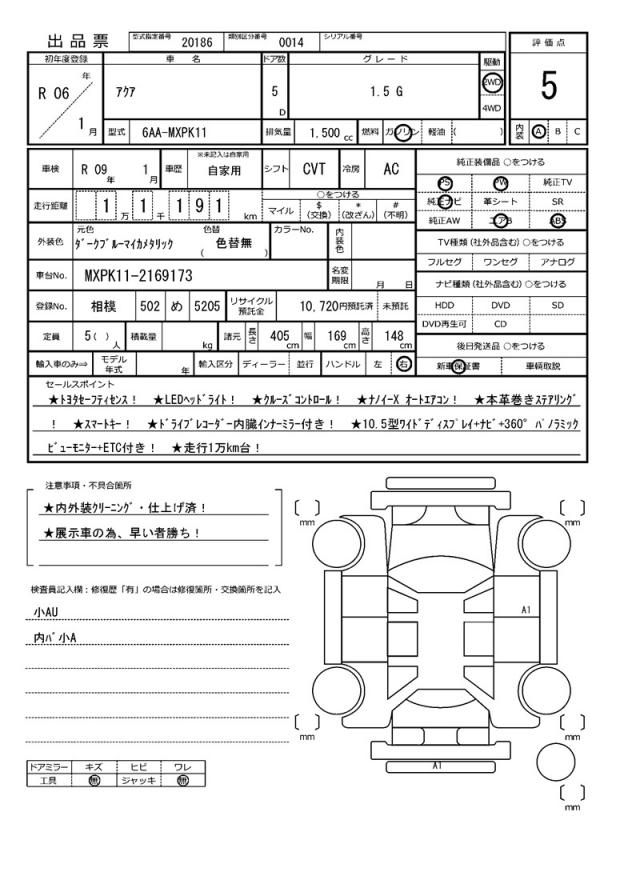 出品票 型式指定番号 20186 類別区分番号 0014 シリアル番号
評価点
5
初年度登録 車名 ドア数 グレード 駆動
R 06 年 1 月
ｱｸｱ
5 D
1.5 G
2WD
4WD
型式 6AA-MXPK11 排気量 1.500 cc 燃料 ガソリン 軽油 ( )
内装 A B C
車検 R 09 年 1 月 車歴 ※未記入は自家用 自家用 シフト CVT 冷房 AC
純正装備品 ○をつける
PS PW 純正TV
純正ナビ 革シート SR
純正AW エアB ABS
走行距離 1 万 1 千 1 9 1 km
○をつける
マイル $ (交換) * (改ざん) # (不明)
外装色 元色 ﾀﾞｰｸﾌﾞﾙｰﾏｲｶﾒﾀﾘｯｸ 色替 ( 色替無 ) カラーNo. 内装色
TV種類 (社外品含む) ○をつける
フルセグ ワンセグ アナログ
車台No. MXPK11-2169173 名変期限 月 日
ナビ種類 (社外品含む) ○をつける
HDD DVD SD
DVD再生可 CD
登録No. 相模 502 め 5205 リサイクル預託金 10,720円預託済 未預託
定員 5 ( ) 人 積載量 kg 諸元 長さ 405 cm 幅 169 cm 高さ 148 cm
後日発送品 ○をつける
新車保証書 車輌取説
輸入車のみ⇒ モデル年式 年 輸入区分 ディーラー 並行 ハンドル 左 右
セールスポイント
★ﾄﾖﾀｾｰﾌﾃｨｾﾝｽ！ ★LEDﾍｯﾄﾞﾗｲﾄ！ ★ｸﾙｰｽﾞｺﾝﾄﾛｰﾙ！ ★ﾅﾉｲｰX ｵｰﾄｴｱｺﾝ！ ★本革巻きｽﾃｱﾘﾝｸﾞ
！ ★ｽﾏｰﾄｷｰ！ ★ﾄﾞﾗｲﾌﾞﾚｺｰﾀﾞｰ内臓ｲﾝﾅｰﾐﾗｰ付き！ ★10.5型ﾜｲﾄﾞﾃﾞｨｽﾌﾟﾚｲ+ﾅﾋﾞ+360°ﾊﾟﾉﾗﾐｯｸ
ﾋﾞｭｰﾓﾆﾀｰ+ETC付き！ ★走行1万km台！
注意事項・不具合箇所
★内外装ｸﾘｰﾆﾝｸﾞ・仕上げ済！
★展示車の為、早い者勝ち！
検査員記入欄：修復歴「有」の場合は修復箇所・交換箇所を記入
小AU
内ﾊﾞ小A
ドアミラー キズ ヒビ ワレ
工具 無 ジャッキ 無
[ ] mm
[ ] mm
A1
[ ] mm
[ ] mm
A1
[ ] mm